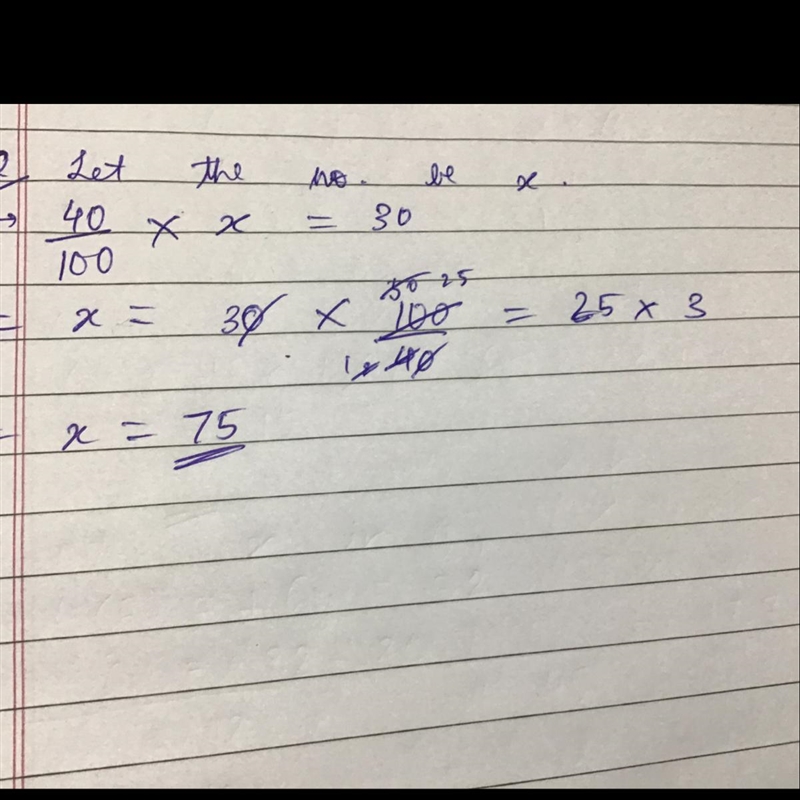 2 Let the no. be x.
→ 40/100 × x = 30
= x = 30 × 100/40 = 25 × 3
50 25
1 2
= x = 75